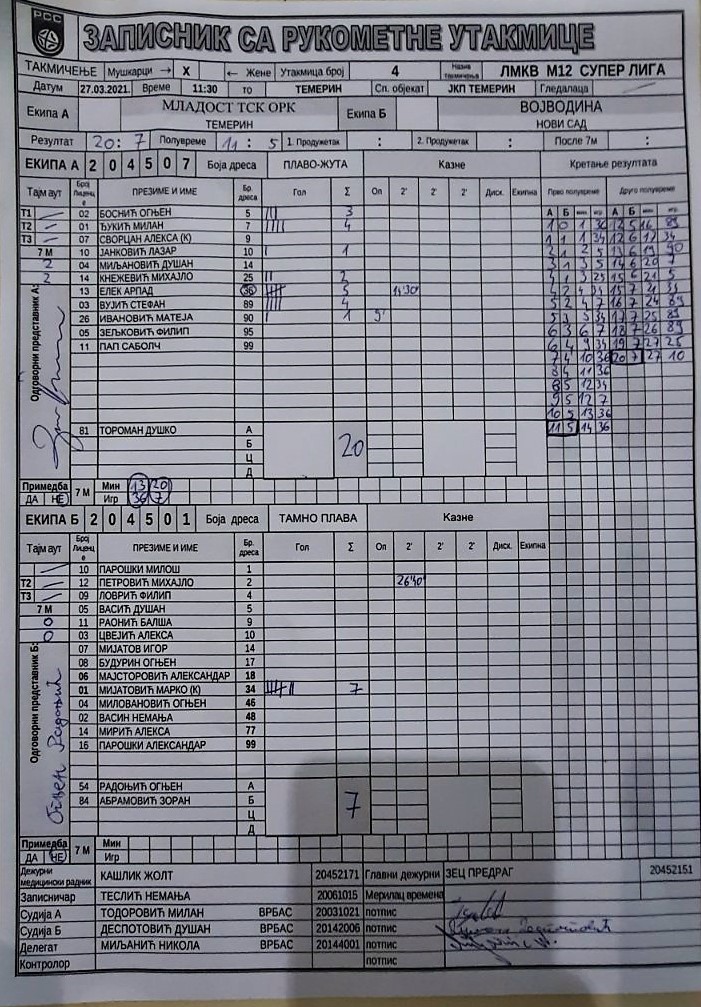 РСС
ЗАПИСНИК СА РУКОМЕТНЕ УТАКМИЦЕ
ТАКМИЧЕЊЕ Мушкарци → X ← Жене Утакмица број 4 Назив такмичења ЛМКВ М12 СУПЕР ЛИГА
Датум 27.03.2021. Време 11:30 то ТЕМЕРИН Сп. објекат ЈКП ТЕМЕРИН Гледалаца
Екипа А МЛАДОСТ ТСК ОРК Екипа Б ВОЈВОДИНА
ТЕМЕРИН НОВИ САД
Резултат 20 : 7 Полувреме 11 : 5 1. Продужетак : 2. Продужетак : После 7м :
ЕКИПА А 2 0 4 5 0 7 Боја дреса ПЛАВО-ЖУТА Казне Кретање резултата
Тајм аут Број Лиценце ПРЕЗИМЕ И ИМЕ Бр. дреса Гол Σ Оп 2' 2' 2' Диск. Екипна Прво полувреме Друго полувреме
А Б мин игр А Б мин игр
Т1 02 БОСНИЋ ОГЊЕН 5 3
Т2 01 ЂУКИЋ МИЛАН 7 4
Т3 07 СВОРЦАН АЛЕКСА (К) 9
7 М 10 ЈАНКОВИЋ ЛАЗАР 10 1
2 04 МИЉАНОВИЋ ДУШАН 14
2 14 КНЕЖЕВИЋ МИХАЈЛО 25 2
13 ЕЛЕК АРПАД 36 5 14'30
03 ВУЈИЋ СТЕФАН 89 4
26 ИВАНОВИЋ МАТЕЈА 90 1 9'
05 ЗЕЉКОВИЋ ФИЛИП 95
11 ПАП САБОЛЧ 99
Одговорни представник А:
81 ТОРОМАН ДУШКО А 20
Б
Ц
Д
1 0 1 36 12 5 16 89
1 1 1 34 12 6 17 34
2 1 2 5 13 6 19 90
3 1 3 5 14 6 20 7
4 1 3 25 15 6 21 5
4 2 4 34 15 7 21 34
5 2 4 7 16 7 24 89
5 3 5 34 17 7 25 89
6 3 6 7 18 7 26 89
6 4 9 34 19 7 27 25
7 4 10 36 20 7 27 10
8 4 11 36
8 5 12 34
9 5 12 7
10 5 13 36
11 5 14 36
Примедба 7 М Мин 13 20
ДА НЕ Игр 36 7
ЕКИПА Б 2 0 4 5 0 1 Боја дреса ТАМНО ПЛАВА Казне
Тајм аут Број Лиценце ПРЕЗИМЕ И ИМЕ Бр. дреса Гол Σ Оп 2' 2' 2' Диск. Екипна
10 ПАРОШКИ МИЛОШ 1
Т2 12 ПЕТРОВИЋ МИХАЈЛО 2 26'40
Т3 09 ЛОВРИЋ ФИЛИП 4
7 М 05 ВАСИЋ ДУШАН 5
0 11 РАОНИЋ БАЛША 9
0 03 ЦВЕЈИЋ АЛЕКСА 10
07 МИЈАТОВ ИГОР 14
08 БУДУРИН ОГЊЕН 17
06 МАЈСТОРОВИЋ АЛЕКСАНДАР 18
01 МИЈАТОВИЋ МАРКО (К) 34 7
04 МИЛОВАНОВИЋ ОГЊЕН 46
02 ВАСИН НЕМАЊА 48
14 МИРИЋ АЛЕКСА 77
16 ПАРОШКИ АЛЕКСАНДАР 99
Одговорни представник Б: Огњен Радоњић
54 РАДОЊИЋ ОГЊЕН А 7
84 АБРАМОВИЋ ЗОРАН Б
Ц
Д
Примедба 7 М Мин
ДА НЕ Игр
Дежурни медицински радник КАШЛИК ЖОЛТ 20452171 Главни дежурни ЗЕЦ ПРЕДРАГ 20452151
Записничар ТЕСЛИЋ НЕМАЊА 20061015 Мерилац времена
Судија А ТОДОРОВИЋ МИЛАН ВРБАС 20031021 потпис
Судија Б ДЕСПОТОВИЋ ДУШАН ВРБАС 20142006 потпис
Делегат МИЉАНИЋ НИКОЛА ВРБАС 20144001 потпис
Контролор потпис